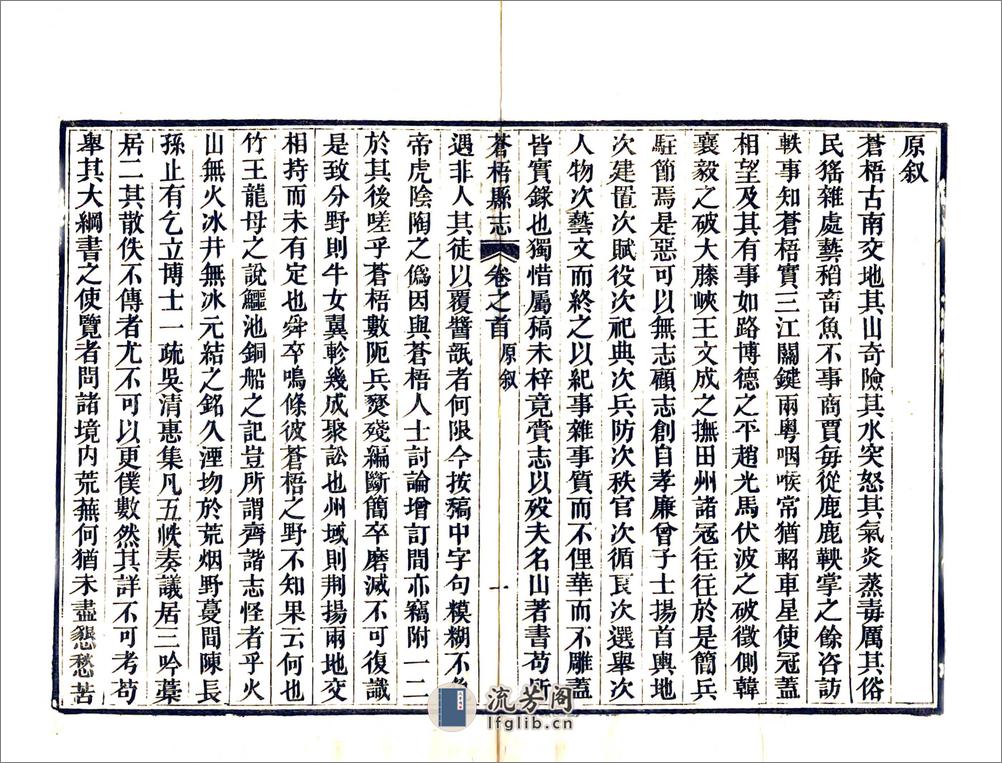 原叙
蒼梧古南交地其山奇險其水突怒其氣炎蒸毒厲其俗
民猺雜處藝稻畜魚不事商賈毎從鹿鹿鞅掌之餘咨訪
軼事知蒼梧實三江關鍵兩粵咽喉常猶軺車星使冠蓋
相望及其有事如路博德之平趙光馬伏波之破徵側韓
襄毅之破大藤峽王文成之撫田州諸冦往往於是簡兵
駐節焉是惡可以無志顧志創自孝廉曾子士揚首輿地
次建置次賦役次祀典次兵防次秩官次循良次選舉次
人物次藝文而終之以紀事雜事質而不俚華而不雕蓋
皆實錄也獨惜屬稿未梓竟賫志以殁夫名山著書苟所
蒼梧縣志 卷之首 原叙 一
遇非人其徒以覆醬瓿者何限今按稿中字句糢糊不
帝虎陰陶之僞因與蒼梧人士討論增訂間亦竊附一二
於其後嗟乎蒼梧數阨兵燹殘編斷簡卒磨滅不可復識
是致分野則牛女翼軫幾成聚訟也州域則荆揚兩地交
相持而未有定也舜卒鳴條彼蒼梧之野不知果云何也
竹王龍母之說鱷池銅船之記豈所謂齊諧志怪者乎火
山無火冰井無冰元結之銘久湮圽於荒烟野蔓間陳長
孫止有乞立博士一疏吳清惠集凡五帙奏議居三吟藁
居二其散佚不傳者尤不可以更僕數然其詳不可考苟
舉其大綱書之使覽者問諸境内荒蕪何猶未盡懇愁苦
流芳阁
lfglib.cn